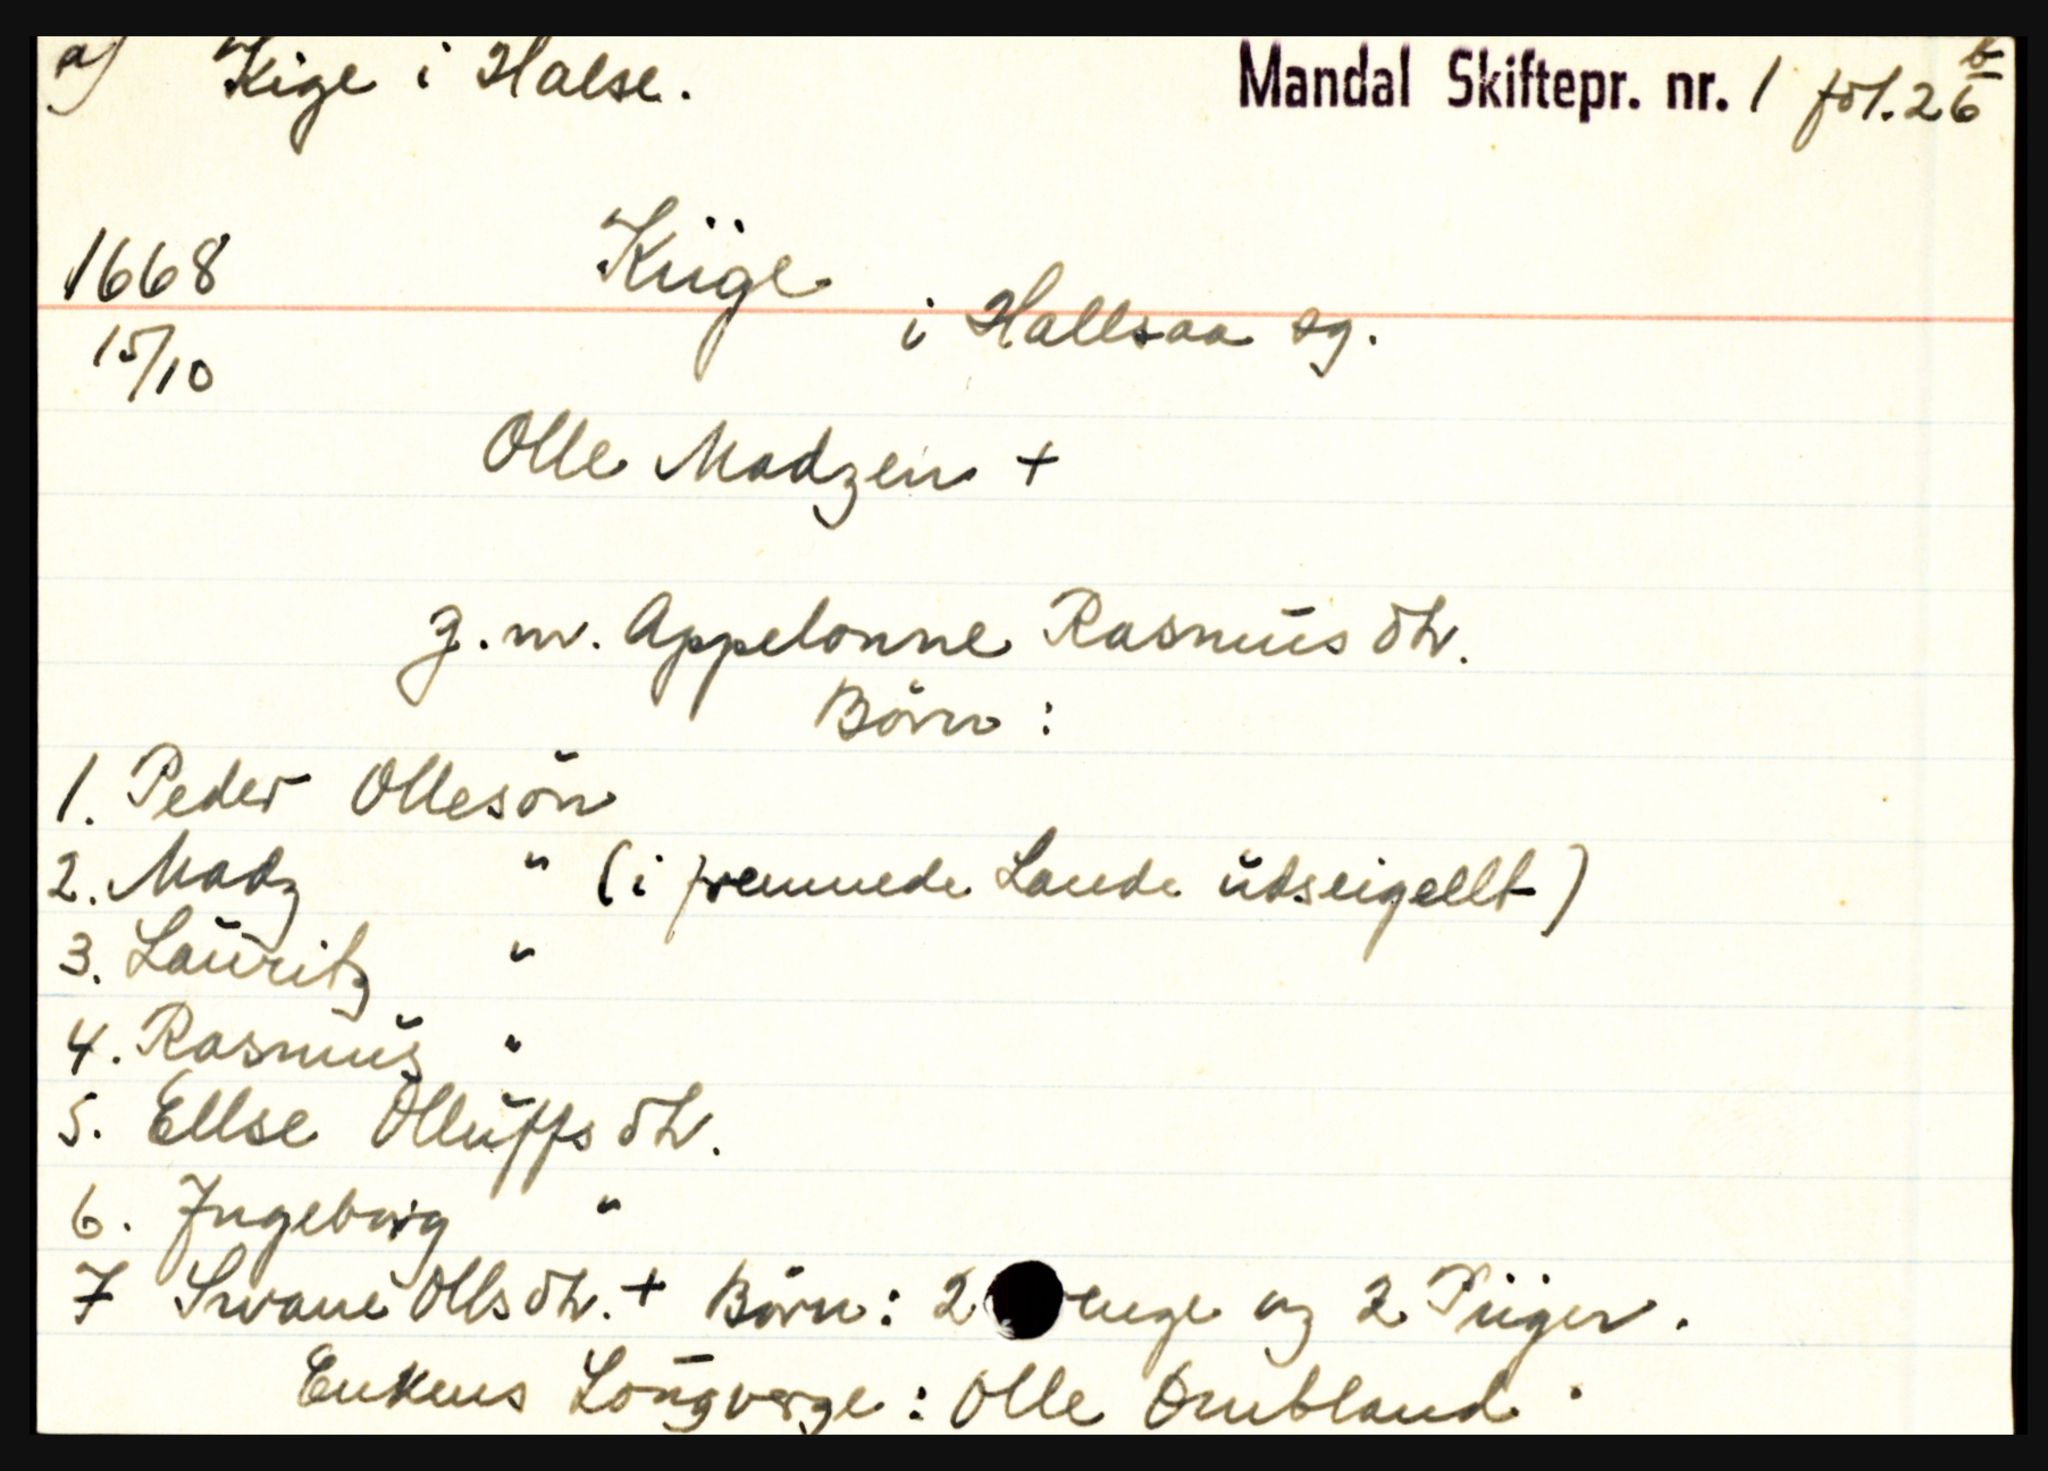 a) Kige i Halse. Mandal Skiftepr. nr. 1 fol. 26 b
1668 Kiige
15/10 i Hallsaa sg.
Olle Madzen +
g. m. Appelonne Rasmus dtr.
Börn :
1. Peder Ollesön
2. Madz " (i fremmede Lande udseigellt)
3. Lauritz "
4. Rasmus "
5. Ellse Olluffs dtr.
6. Ingeborg "
7 Swane Olls dtr. + Börn : 2 enge og 2 Piiger.
Enkens Laugverge : Olle